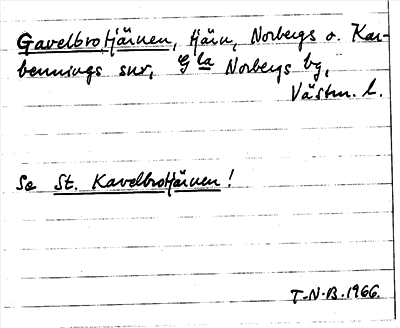 Gavelbrotjärnen, tjärn, Norbergs o. Kar-
bennings snr, Gla Norbergs bg,
Västm. l.
Se St. Kavelbrotjärnen!
T-N-B. 1966.